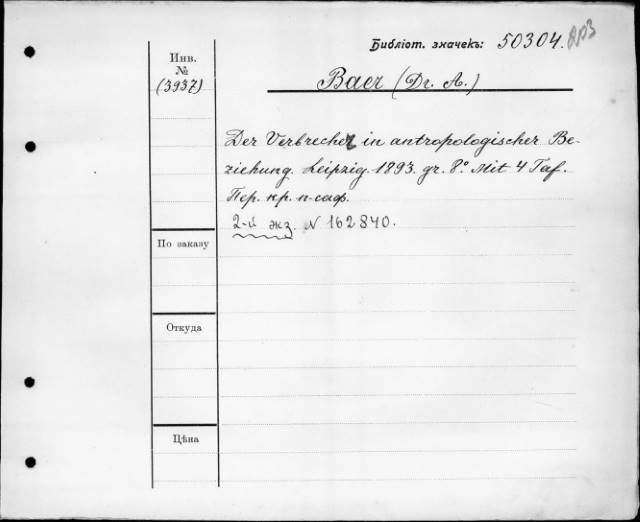 Библіот. значекъ: 50304.
Инв.
№
(3937)
Baer (Dr. A.)
Der Verbrecher in antropologischer Be-
ziehung. Leipzig. 1893. gr. 8° Mit 4 Taf.
Пер. кр. п-саф.
2-й экз. N 162840.
По заказу
Откуда
Цѣна